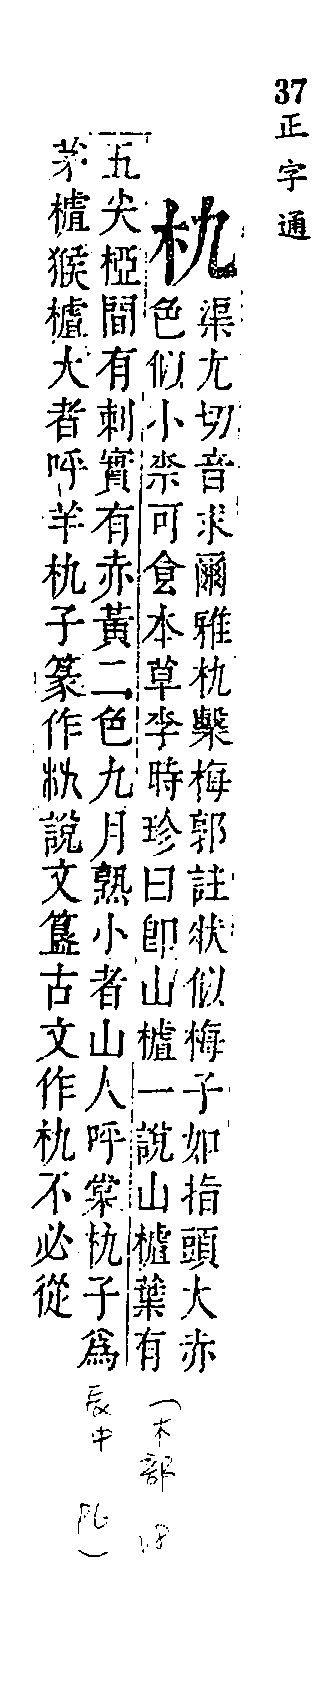 37
正字通
朹
渠尤切音求爾雅朹檕梅郭註狀似梅子如指頭大赤
色似小柰可食本草李時珍曰卽山樝一說山樝葉有
五尖椏間有刺實有赤黃二色九月熟小者山人呼棠朹子爲
茅樝猴樝大者呼羊朹子篆作朹說文簋古文作朹不必從
(木部
辰中